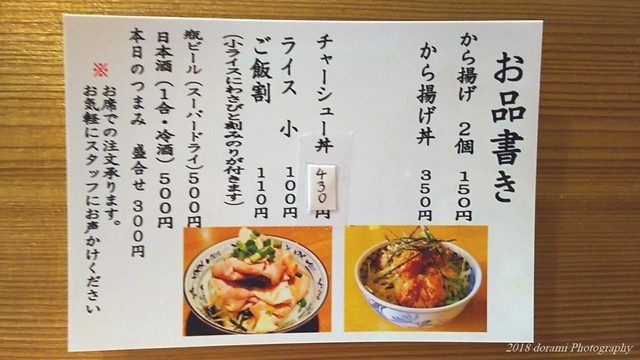 お品書き
から揚げ 2個 150円
から揚げ丼 350円
チャーシュー丼 430円
ライス 小 100円
ご飯割 110円
(小ライスにわさびと刻みのりが付きます)
瓶ビール(スーパードライ)500円
日本酒(1合・冷酒)500円
本日のつまみ 盛合せ 300円
※ お席での注文承ります。
お気軽にスタッフにお声かけください
2018 dorami Photography